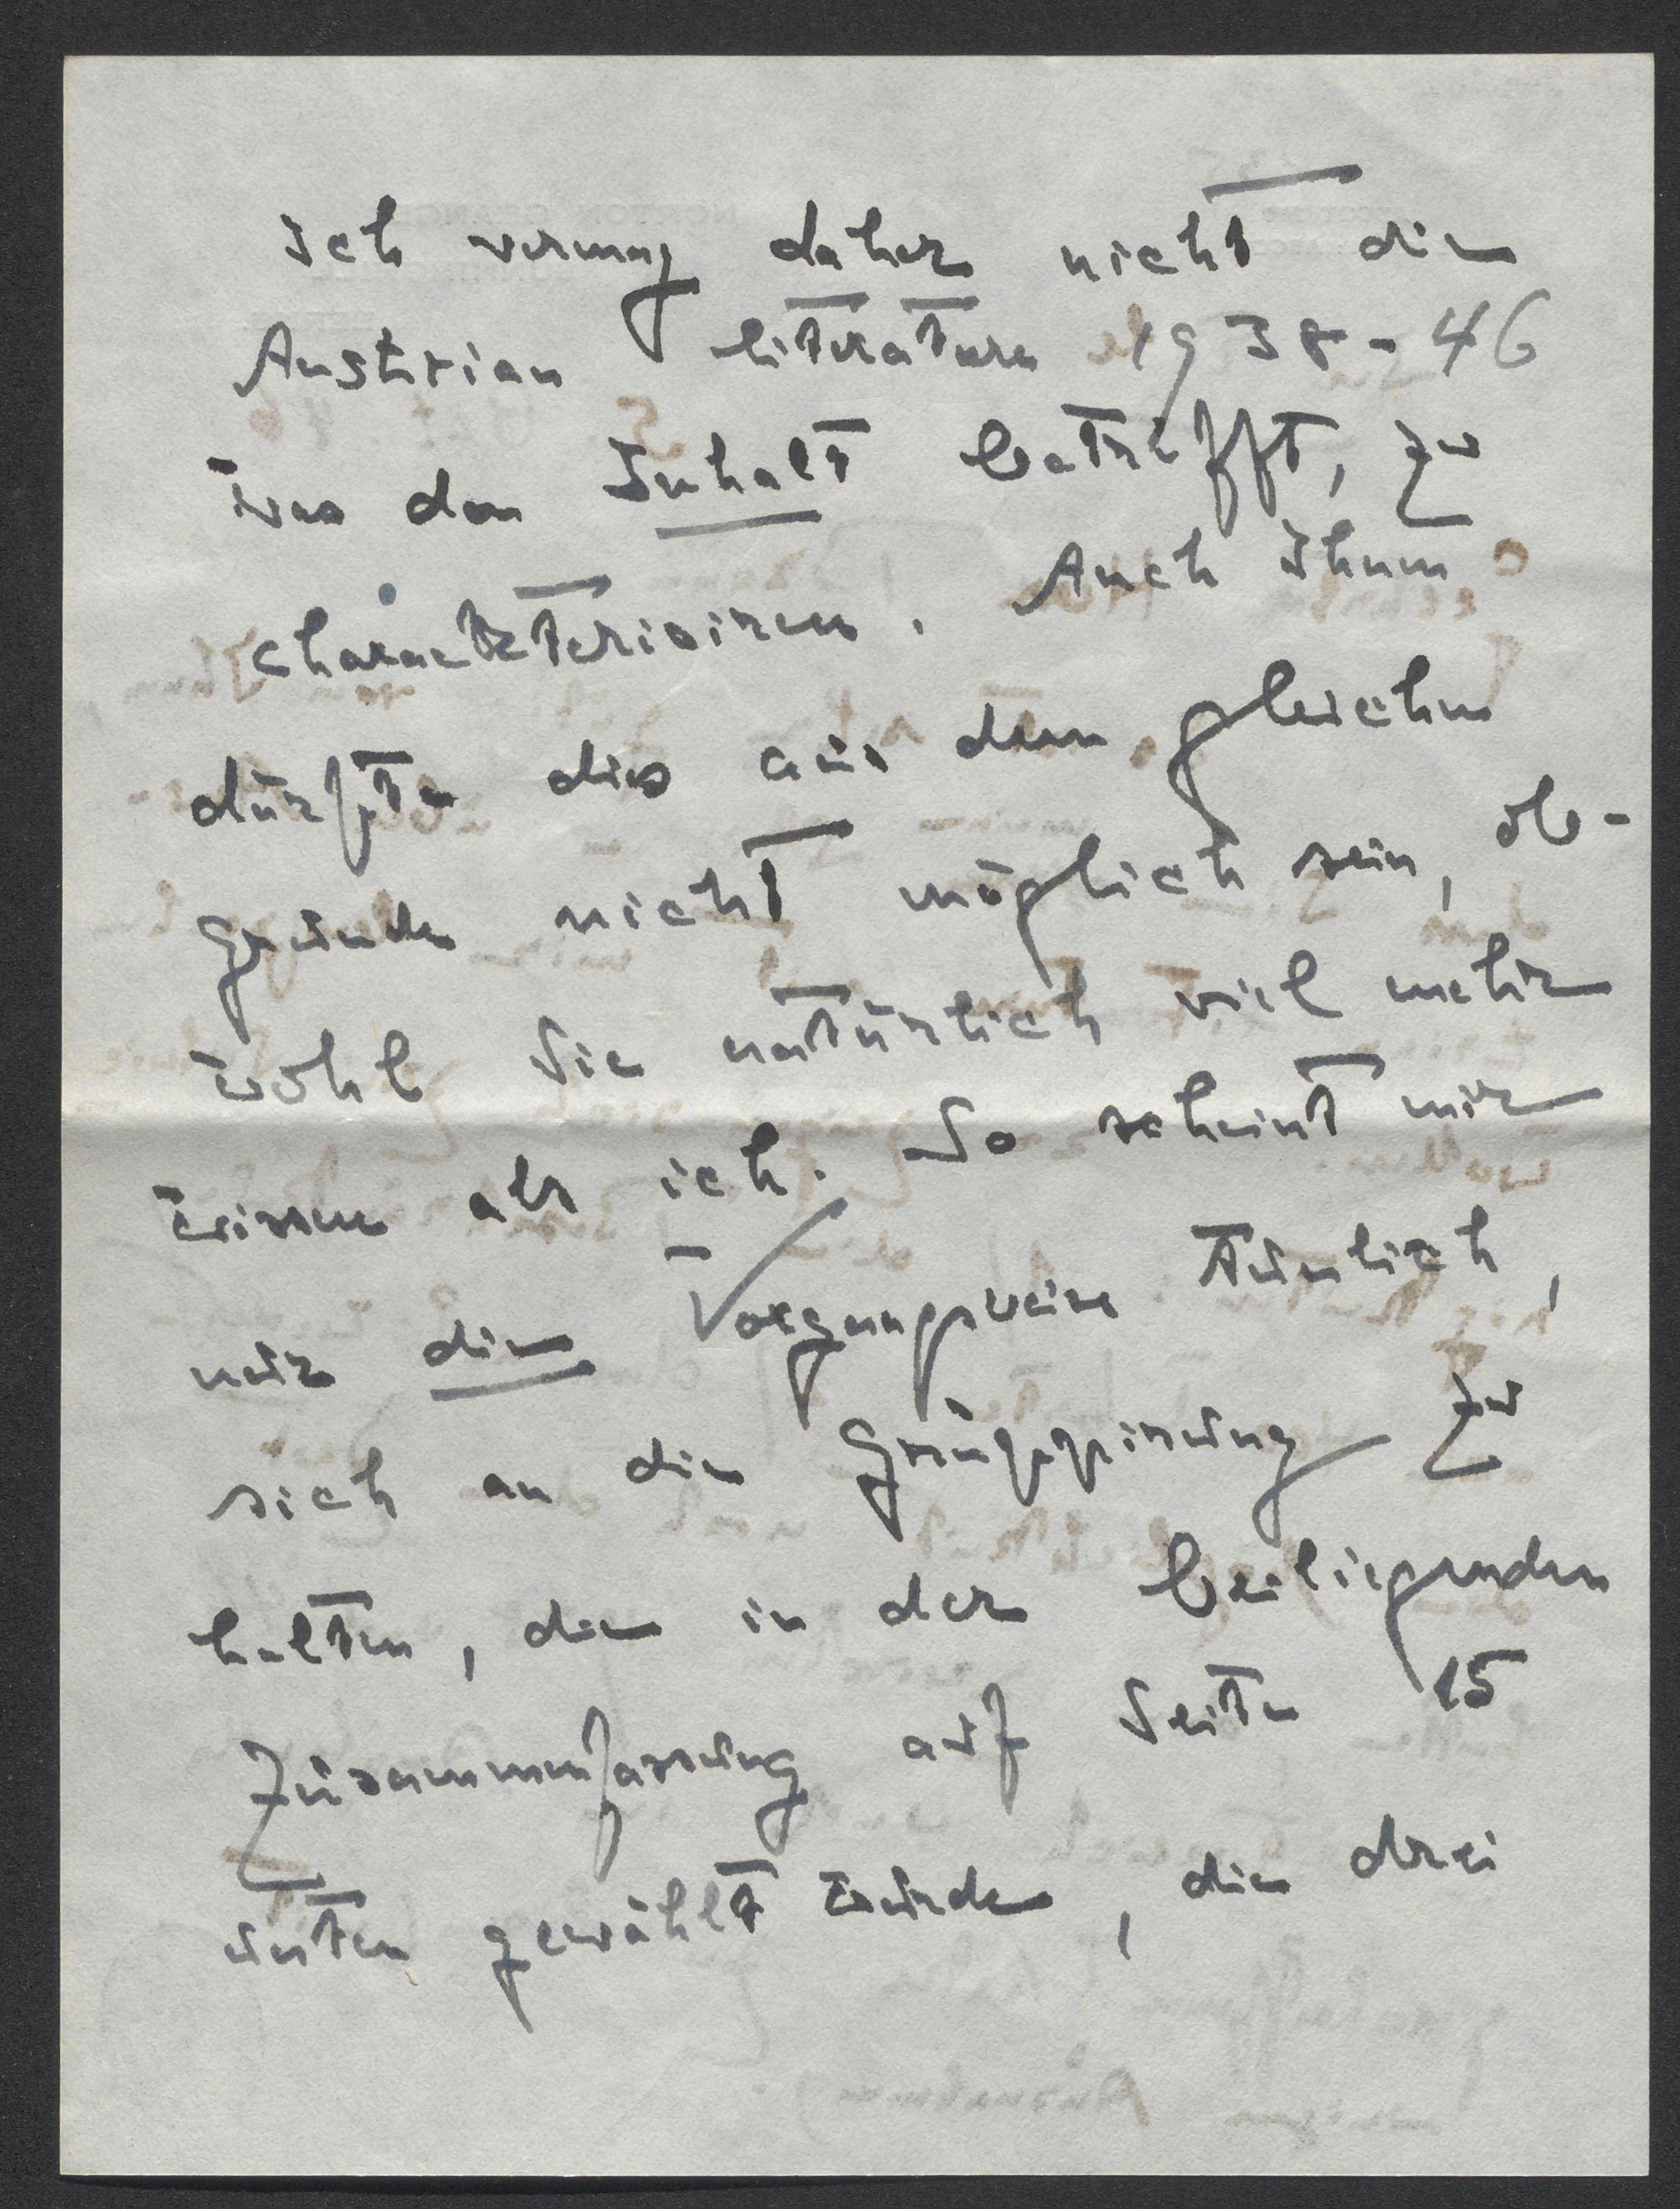 Ich vermag daher nicht die
Austrian literature 1938-46
was den Inhalt betrifft, zu
charackterisiren. Auch Ihnen
dürfte dies aus dem gleichen
Grunde nicht möglich sein, ob-
wohl Sie natürlich viel mehr
wissen als ich. So scheint mir
nur die Vorgangsweise tunlich,
sich an die Gruppirung zu
halten, die in der beiliegenden
Zusammenfassung auf Seite 15
unten gewählt wurde, die drei